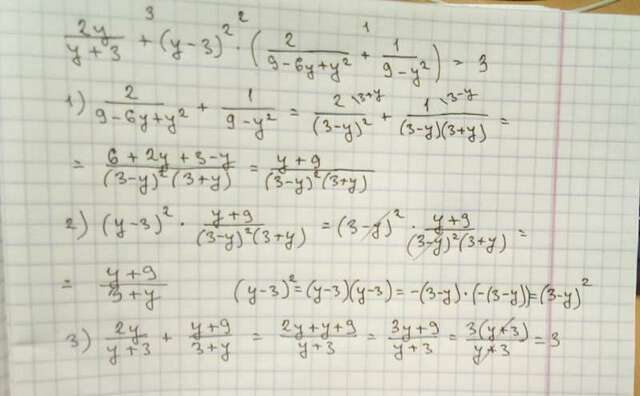 2y/(y+3) +³ (y-3)² ·² (2/(9-6y+y²) +¹ 1/(9-y²)) = 3
1) 2/(9-6y+y²) + 1/(9-y²) = 2\3+y/(3-y)² + 1\3-y/((3-y)(3+y)) =
= (6+2y+3-y)/((3-y)²(3+y)) = (y+9)/((3-y)²(3+y))
2) (y-3)² · (y+9)/((3-y)²(3+y)) = (3-y)² · (y+9)/((3-y)²(3+y)) =
= (y+9)/(3+y) (y-3)² = (y-3)(y-3) = -(3-y)·(-(3-y)) = (3-y)²
3) 2y/(y+3) + (y+9)/(3+y) = (2y+y+9)/(y+3) = (3y+9)/(y+3) = 3(y+3)/(y+3) = 3